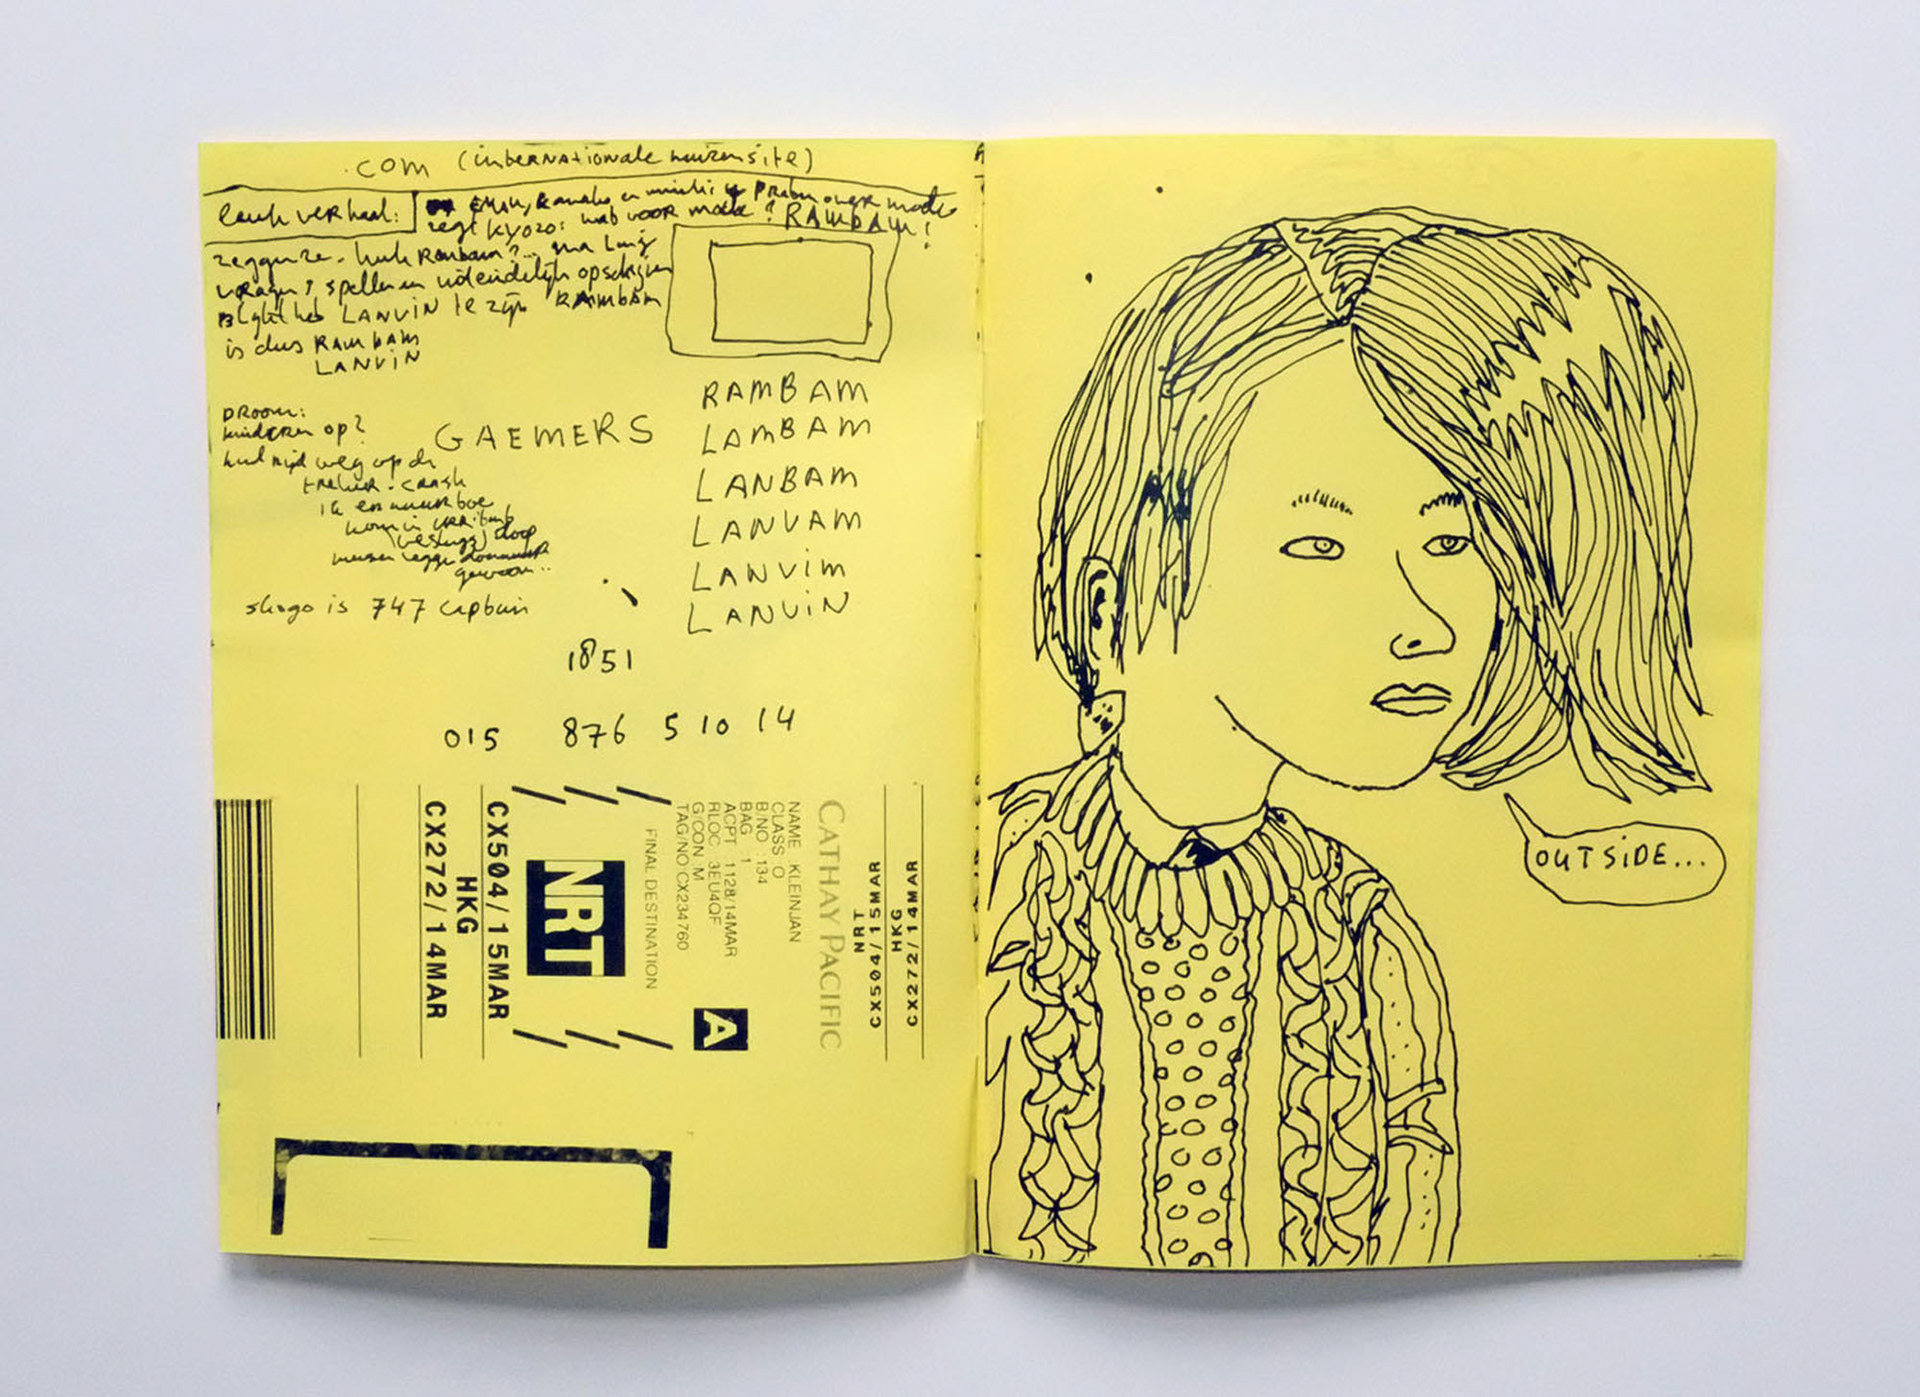 .COM (internationale huizensite)
leuk verhaal:
en praten over mode
zegt KYOZO: wat voor mode? RAMBAM!
zeggen ze. huh Rambam?... na lang
vragen, spellen en uiteindelijk opschrijven
blijkt het LANVIN te zijn RAMBAM
is dus RAMBAM
LANVIN
RAMBAM
LAMBAM
LANBAM
LANVAM
LANVIM
LANVIN
DROOM:
kinderen op?
weg op de
crash
GAEMERS
ik en
kom in
gewoon..
shogo is 747 captain
1851
015 876 5 10 14
CX272/14MAR
HKG
CX504/15MAR
NRT
CATHAY PACIFIC
NAME KLEINJAN
CLASS O
B/NO 134
BAG 1
ACPT 1128/14MAR
RLOC 3EU4QF
G/CON M
TAG/NO CX234760
A
FINAL DESTINATION
NRT
CX504/15MAR
HKG
CX272/14MAR
OUTSIDE...